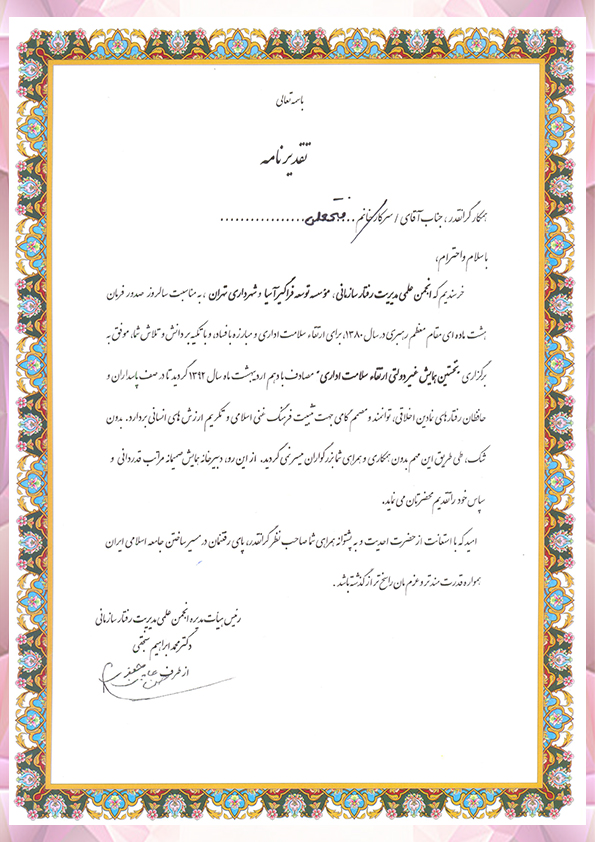 باسمه تعالی
تقدیرنامه
همکار گرانقدر، جناب آقای / سرکار خانم ....................
باسلام واحترام،
خرسندیم که انجمن علمی مدیریت رفتار سازمانی، مؤسسه توسعه فراگیر آسیا و شهرداری تهران، به مناسبت سالروز صدور فرمان
هشت ماده ای مقام معظم رهبری در سال ۱۳۸۰، برای ارتقاء سلامت اداری و مبارزه با فساد، و با تکیه بر دانش و تلاش شما، موفق به
برگزاری "نخستین همایش غیردولتی ارتقاء سلامت اداری" مصادف با دهم اردیبهشت ماه سال ۱۳۹۲ گردید تا در صف پاسداران و
حافظان رفتارهای نمادین اخلاقی، توانمند و مصمم گامی جهت تثبیت فرهنگ غنی اسلامی و تکریم ارزش های انسانی بردارد. بدون
شک، طی طریق این مهم بدون همکاری و همراهی شما بزرگواران میسر نمی گردید. از این رو، دبیرخانه همایش صمیمانه مراتب قدردانی و
سپاس خود را تقدیم محضرتان می نماید.
امید که با استعانت از حضرت احدیت و به پشتوانه همراهی شما صاحب نظر گرانقدر، پای رفتنمان در مسیر ساختن جامعه اسلامی ایران
همواره قدرت مندتر و عزم مان راسخ تر از گذشته باشد.
رئیس هیأت مدیره انجمن علمی مدیریت رفتار سازمانی
دکتر محمد ابراهیم سنجقی
از طرف